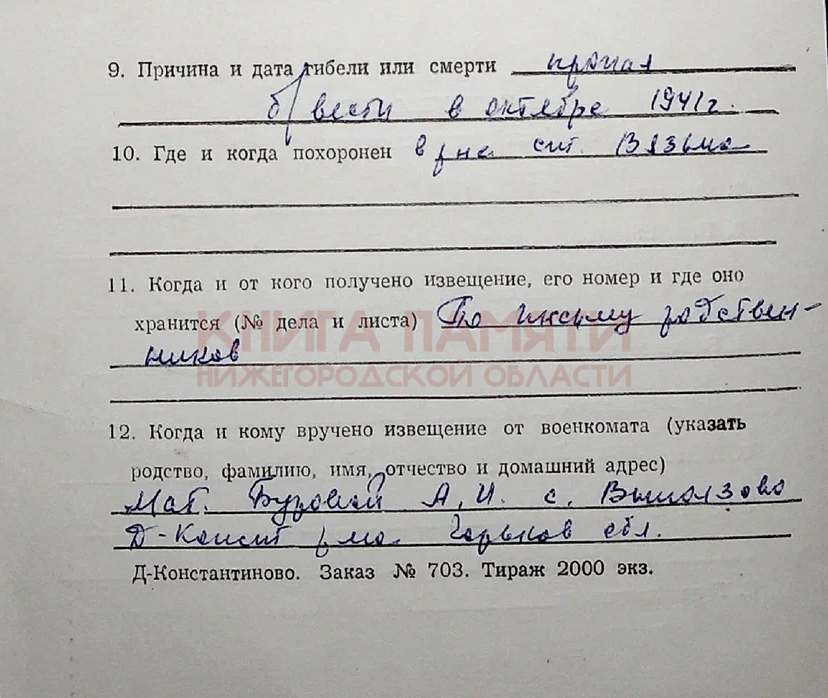 9. Причина и дата гибели или смерти пропал
б/вести в октябре 1941г.
10. Где и когда похоронен в р-не ст. Вязьма
11. Когда и от кого получено извещение, его номер и где оно
хранится (№ дела и листа) По письму родствен-
ников
КНИГА ПАМЯТИ
НИЖЕГОРОДСКОЙ ОБЛАСТИ
12. Когда и кому вручено извещение от военкомата (указать
родство, фамилию, имя, отчество и домашний адрес)
Мат. Бузовой А. И. с.
Д-Конст р-на Горьков обл.
Д-Константиново. Заказ № 703. Тираж 2000 экз.